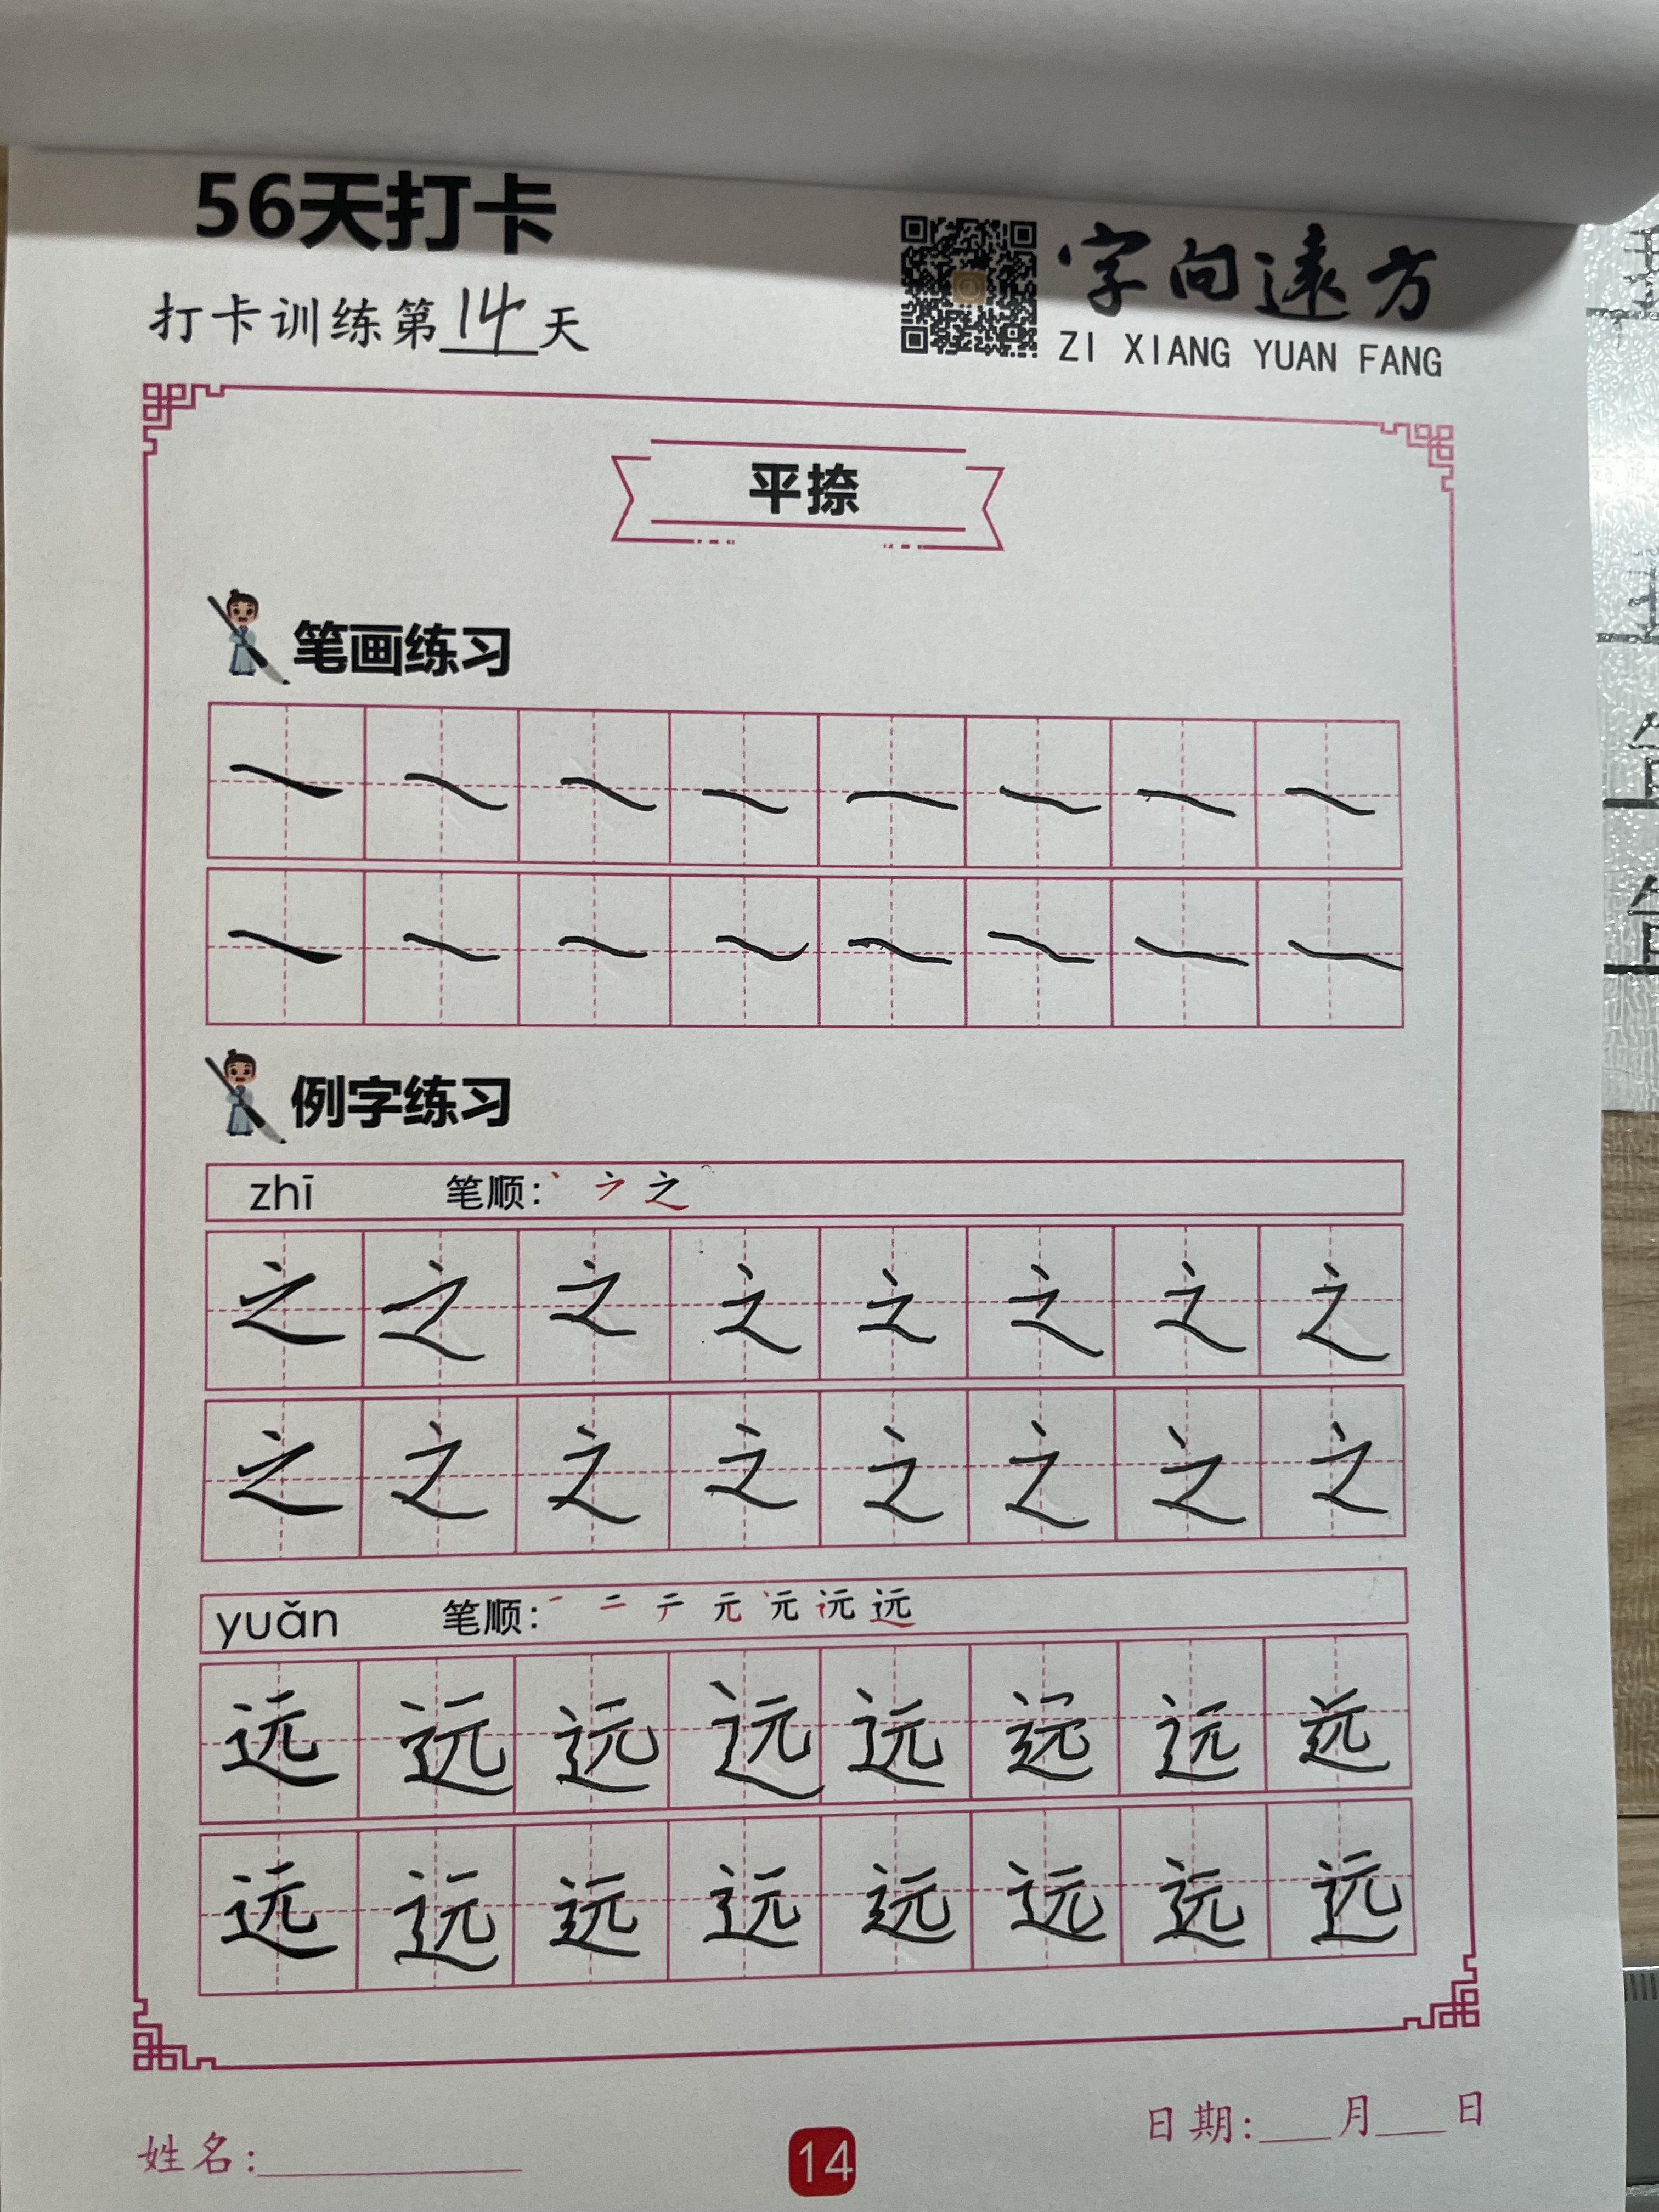 56天打卡
打卡训练第14天
字向遠方
ZI XIANG YUAN FANG
平捺
笔画练习
例字练习
zhī 笔顺:丶 之
之 之 之 之 之 之 之 之
之 之 之 之 之 之 之 之
yuǎn 笔顺: 一 二 元 远
远 远 远 远 远 远 远 远
远 远 远 远 远 远 远 远
姓名:
14
日期: 月 日